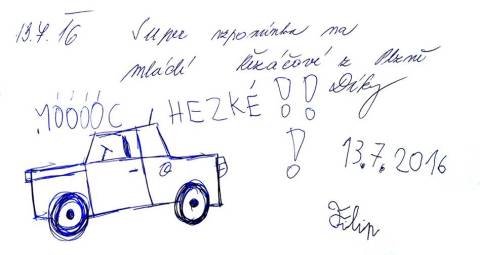 13.7.16 Super vzpomínka na
mládí Řezáčovi z Plzně
Díky
MÓÓÓÓC HEZKÉ!!!
13.7.2016
Filip